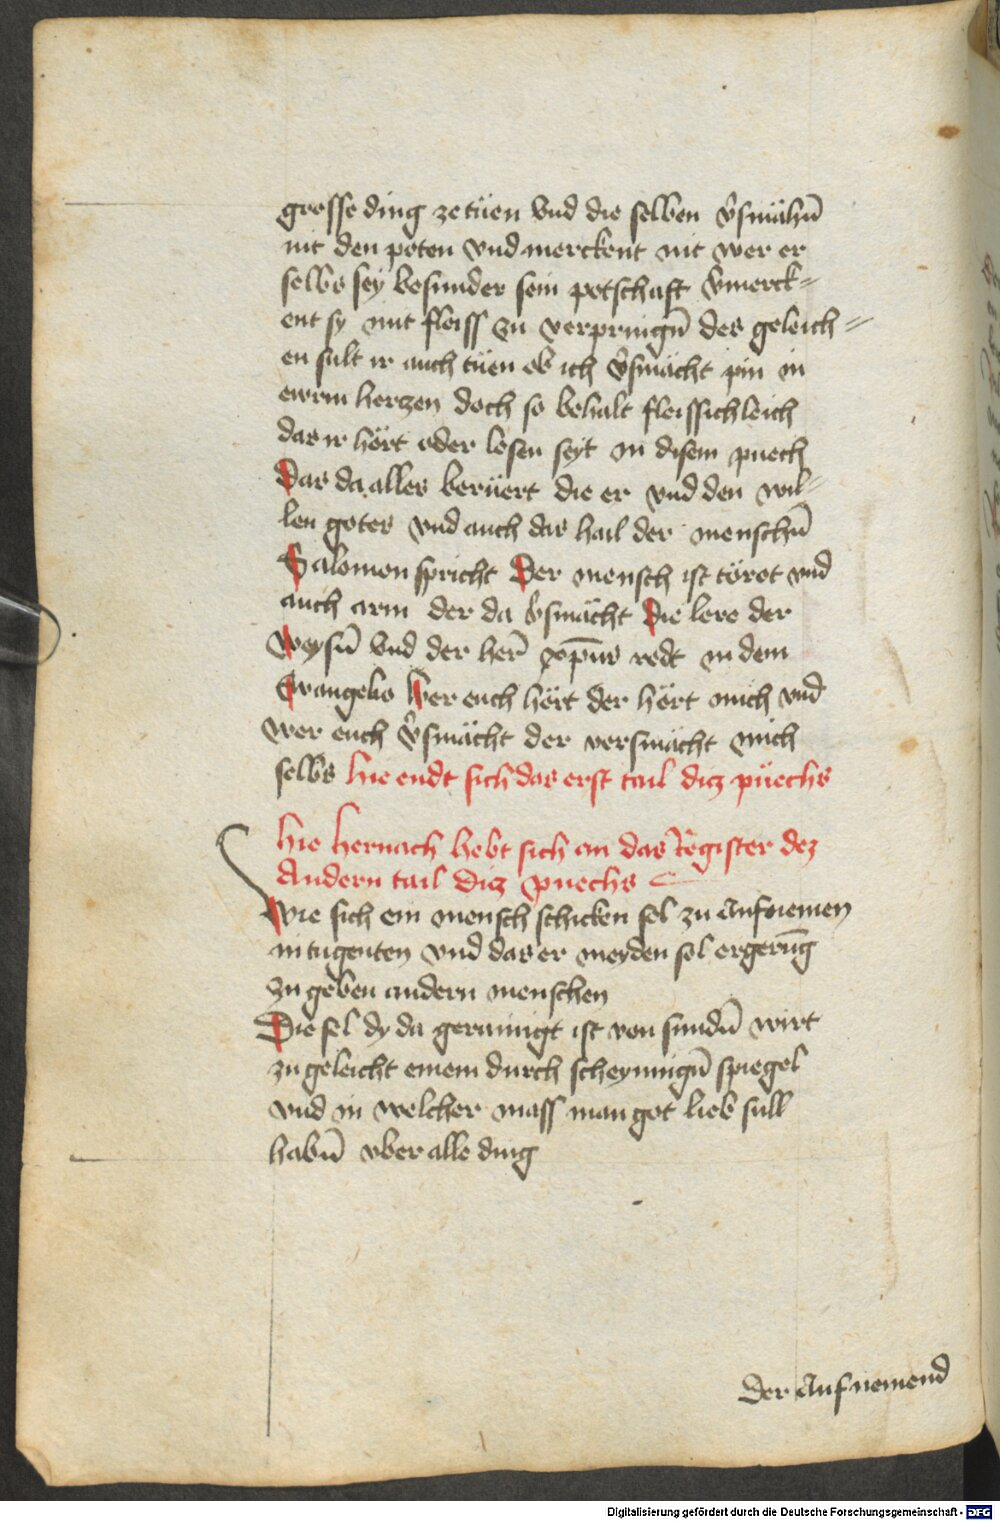 grosse ding ze tüen vnd die selben v̉smähn̄
nit den poten vnd merckent nit wer er
selbs sey besunder sein potschaft v̉merck=
ent sy mit fleiss zu verpringn̄ des geleich=
en sült ir auch tüen ob ich v̉smächt pin in
ewrm herczen doch so behalt fleissichleich
das ir hört oder lesen seyt in disem puech
Das da alles berüert die er vnd den wil=
len gotes vnd auch das hail der menschn̄
Salomon spricht Der mensch ist töret vnd
auch arm der da v̉smächt die lere der
weysn̄ vnd der her̄ xp̄us redt in dem
Ewangelio wer euch hört der hört mich vnd
wer euch v̉smächt der versmächt mich
selbs hie endt sich das erst tail dicz püechs
hie hernach hebt sich an das Register dez
Andern tail dicz puechs
Wie sich ein mensch schicken sol zu Aufnemen
in tugenten vnd das er meyden sol ergerūg
zu geben andern menschen
Die sel dy da gerainigt ist von sundn̄ wirt
zu geleicht einem durch scheynnign̄ spiegel
vnd in welcher mass man got lieb süll
habn̄ vber alle ding
der Aufnemend
Digitalisierung gefördert durch die Deutsche Forschungsgemeinschaft - DFG